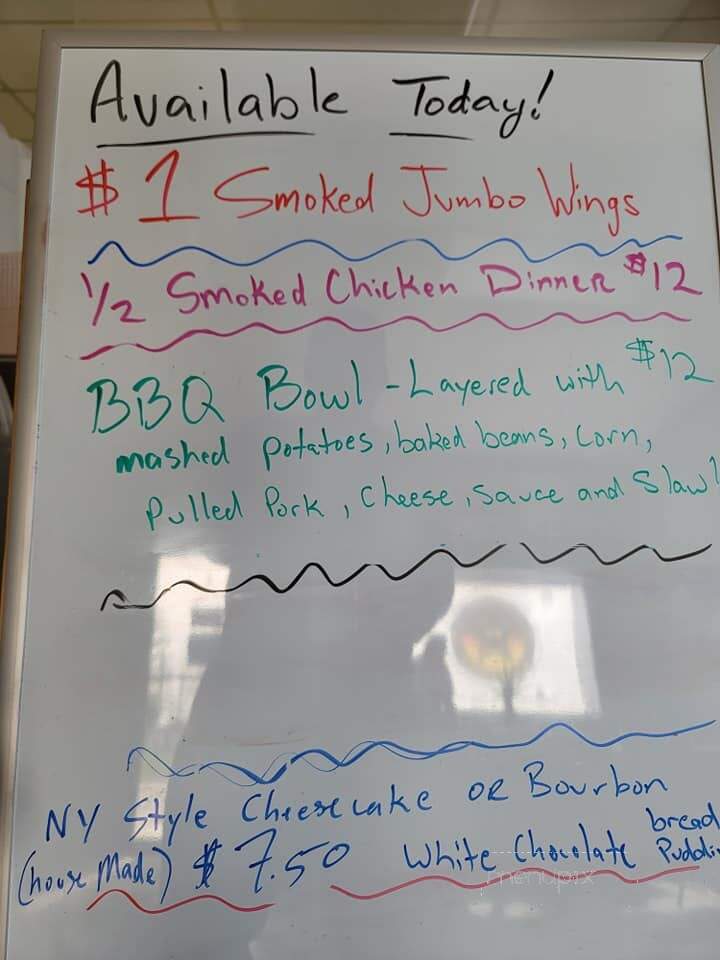 Available Today!
$1 Smoked Jumbo Wings
1/2 Smoked Chicken Dinner $12
BBQ Bowl - Layered with $12
mashed potatoes, baked beans, corn,
Pulled Pork, Cheese, Sauce and Slaw!
NY Style Cheesecake OR Bourbon
(house Made) $7.50 White Chocolate bread
Puddin
menupix